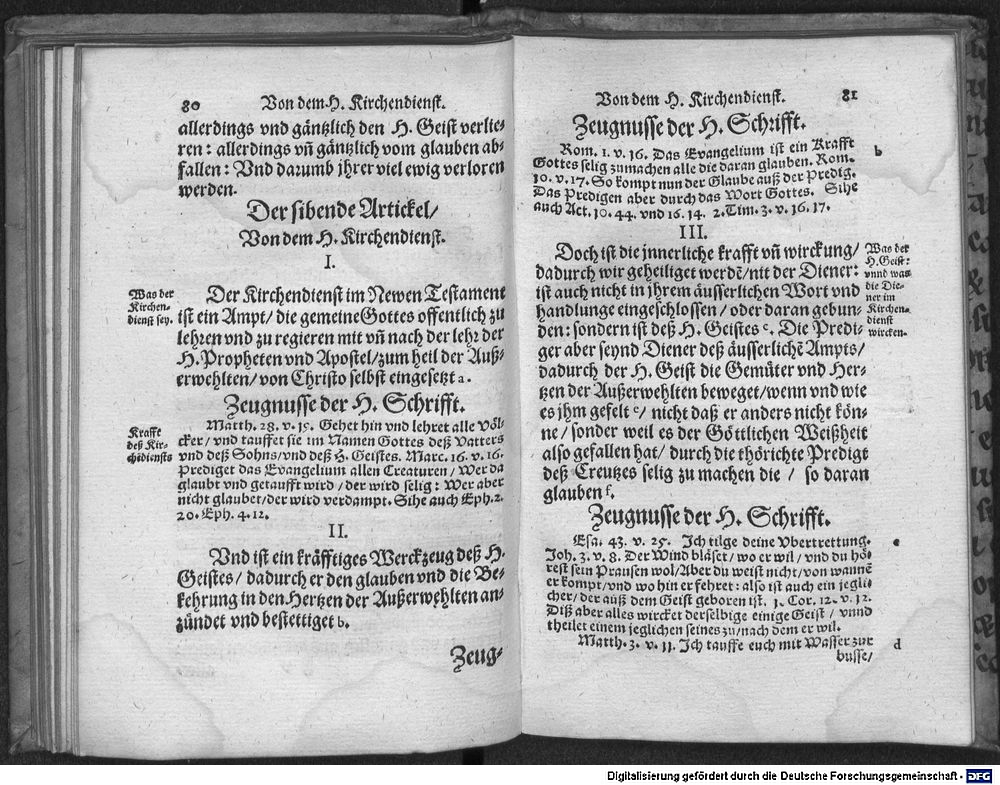 80 Von dem H. Kirchendienst.
allerdings vnd gäntzlich den H. Geist verlie-
ren: allerdings vñ gäntzlich vom glauben ab-
fallen: Vnd darumb jhrer viel ewig verloren
werden.
Der sibende Artickel/
Von dem H. Kirchendienst.
I.
Was der
Kirchen-
dienst sey.
Der Kirchendienst im Newen Testament
ist ein Ampt/ die gemeine Gottes offentlich zu
lehren vnd zu regieren mit vñ nach der lehr der
H. Propheten vnd Apostel/ zum heil der Auß-
erwehlten/ von Christo selbst eingesetzt a.
Zeugnusse der H. Schrifft.
Krafft
deß Kir-
chẽdiensts
Matth. 28. v. 19. Gehet hin vnd lehret alle Völ-
cker/ vnd tauffet sie im Namen Gottes deß Vatters
vnd deß Sohns/ vnd deß H. Geistes. Marc. 16. v. 16.
Prediget das Evangelium allen Creaturen/ Wer da
glaubt vnd getaufft wird/ der wird selig: Wer aber
nicht glaubet/ der wird verdampt. Sihe auch Eph. 2.
20. Eph. 4. 12.
II.
Vnd ist ein kräfftiges Werckzeug deß H.
Geistes/ dadurch er den glauben vnd die Be-
kehrung in den Hertzen der Außerwehlten an-
zündet vnd bestettiget b.
Zeug-
Von dem H. Kirchendienst. 81
Zeugnusse der H. Schrifft.
Rom. 1. v. 16. Das Evangelium ist ein Krafft b
Gottes selig zumachen alle die daran glauben. Rom.
10. v. 17. So kompt nun der Glaube auß der Predig.
Das Predigen aber durch das Wort Gottes. Sihe
auch Act. 10. 44. vnd 16. 14. 2. Tim. 3. v. 16. 17.
III.
Doch ist die jnnerliche krafft vñ wirckung/
dadurch wir geheiliget werdẽ/ nit der Diener:
ist auch nicht in jhrem äusserlichen Wort vnd
handlunge eingeschlossen/ oder daran gebun-
den: sondern ist deß H. Geistes c. Die Predi-
ger aber seynd Diener deß äusserlichẽ Ampts/
dadurch der H. Geist die Gemüter vnd Her-
tzen der Außerwehlten beweget/ wenn vnd wie
es jhm gefelt e/ nicht daß er anders nicht kön-
ne/ sonder weil es der Göttlichen Weißheit
also gefallen hat/ durch die thörichte Predigt
deß Creutzes selig zu machen die/ so daran
glauben f.
Was der
H. Geist:
vnnd was
die Die-
ner im
Kirchen-
dienst
wircken.
Zeugnusse der H. Schrifft.
Esa. 43. v. 25. Ich tilge deine Vbertrettung.
Joh. 3. v. 8. Der Wind bläset/ wo er wil/ vnd du hö-
rest sein Prausen wol/ Aber du weist nicht/ von wannẽ
er kompt/ vnd wo hin er fehret: also ist auch ein jegli-
cher/ der auß dem Geist geboren ist. 1. Cor. 12. v. 12.
Diß aber alles wircket derselbige einige Geist/ vnnd
theilet einem jeglichen seines zu/ nach dem er wil.
Matth. 3. v. 11. Ich tauffe euch mit Wasser zur d
busse/
Digitalisierung gefördert durch die Deutsche Forschungsgemeinschaft - DFG